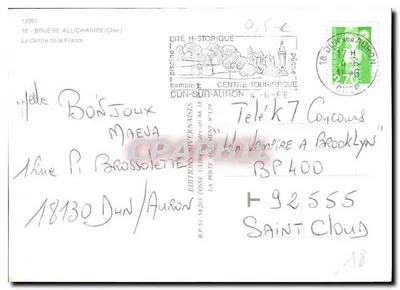 12091
18 - BRUÈRE-ALLICHAMPS (Cher)
Le Centre de la France
0,5 €
CITÉ HISTORIQUE
piscine
camping
pêche
CENTRE TOURISTIQUE
DUN-SUR-AURON
18 DUN SUR AURON
17 H
CHER
Melle BONJOUX
MAEVA
1 Rue P. BROSSOLETTE
18130 DUN/AURON
EDITIONS NIVERNAISES
Télé K7 Concours
"Un Vampire a BROOKLYN"
BP 400
92555
SAINT CLOUD
18